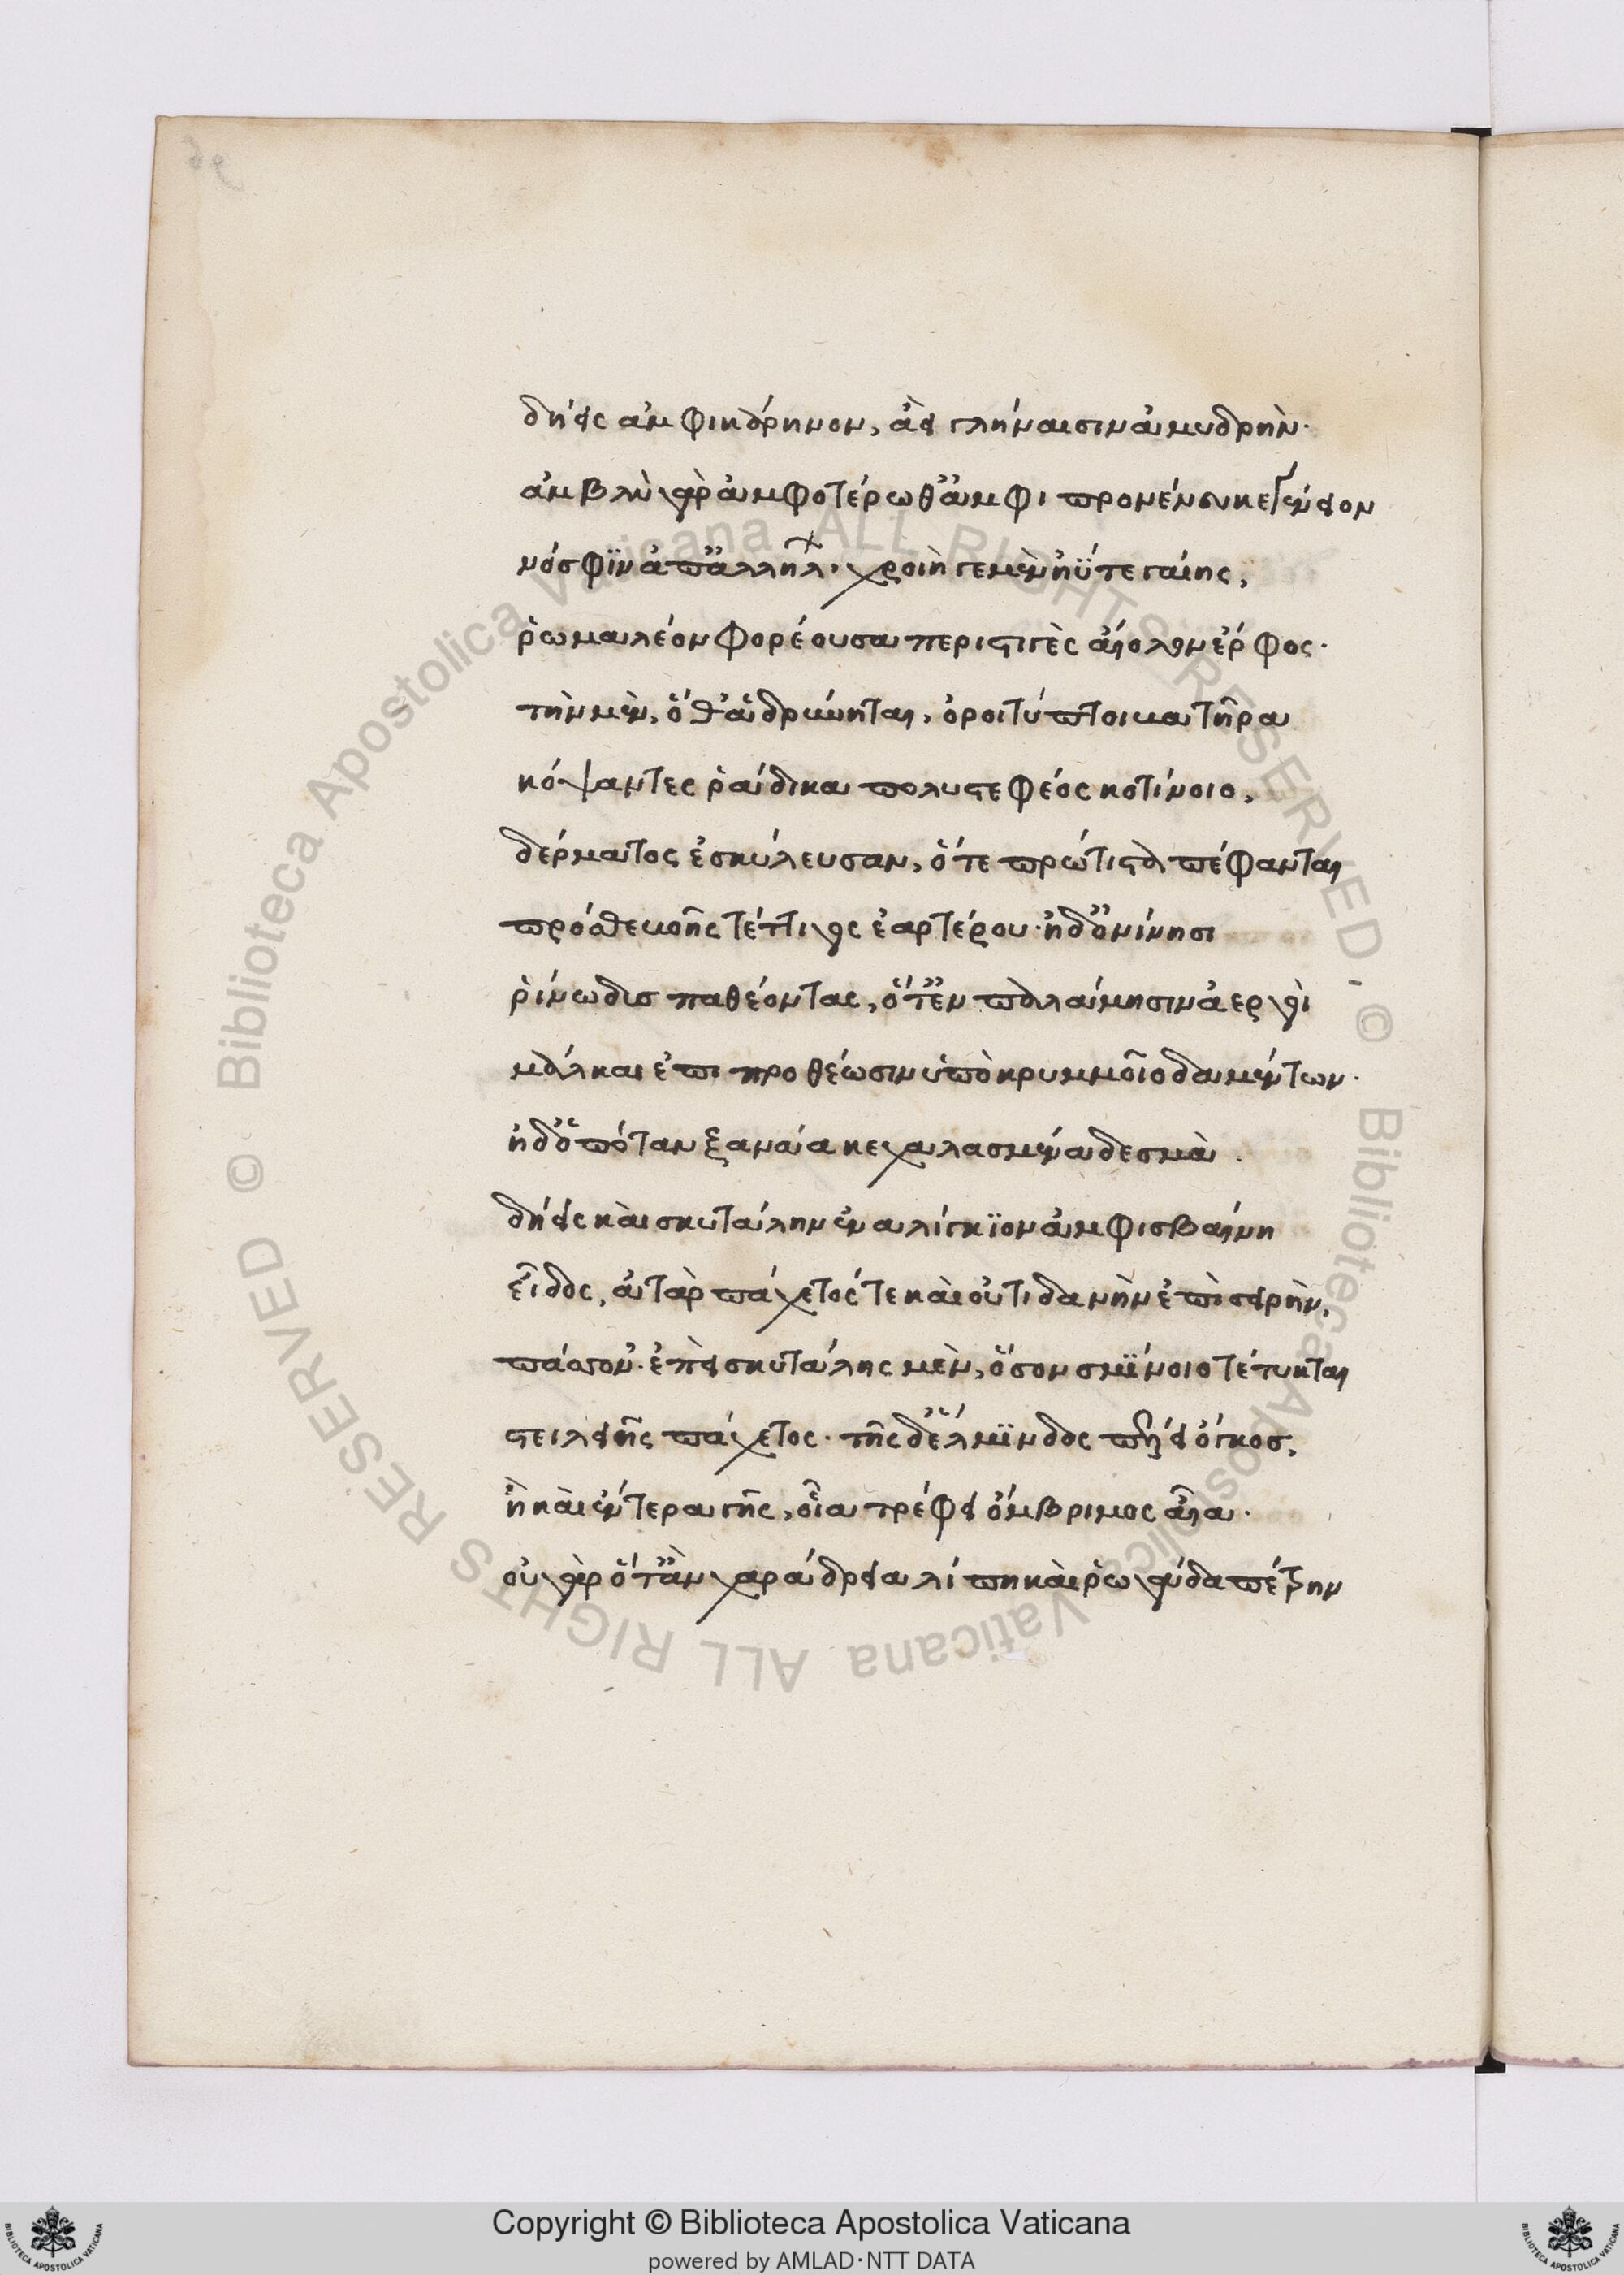 δήεις ἀμφικάρηνον, ἀεὶ γλήναισιν ἀμυδρὴν·
ἀμβλὺ γὰρ ἀμφοτέρωθ' ἀμφι προνένευκε γένειον
νόσφϊν ἀπ' ἀλλήλ· χροιὴ γε μὲν ἠΰτε γαίης,
ῥωμαλέον φορέουσα περιστιγὲς αἰόλον ἔρφος·
τὴν μὲν, ὅθ' ἁδρύνηται, ὀροιτύποι οἷα βατῆρα
κόψαντες ῥάδικα πολυστεφέος κοτίνοιο,
δέρματος ἐσκύλευσαν, ὅτε πρώτιστα πέφανται
πρόσθε βοῆς τέττιγος ἐαρτέρου· ἠδ' ὀνίνησι
ῥινῶδισπαθέοντας, ὅτ' ἐν παλάμησιν ἀεργὶ
μάλκαι ἐπιπροθέωσιν ὑπὸ κρυμμοῖο δαμέντων·
ἠδ' ὁπόταν ξαναᾶ κεχαλασμένα δεσμὰ.
δήεις καὶ σκυτάλην ἐναλίγκϊον ἀμφισβαίνῃ
εἶδος, ἀτὰρ πάχετός τε καὶ οὐτιδανὴν ἐπὶ σειρὴν,
πάσσον· ἐπεὶ σκυτάλης μὲν, ὅσον σμϊνύοιο τέτυκται
στειλειῆς πάχετος· τῆς δ' ἕλμϊνθος πέλει ὄγκος,
ἢ καὶ ἔντερα γῆς, οἷα τρέφει ὄμβριμος αἶα·
οὐ γὰρ ὅτ' ἂν χαράδρεια λίπῃ καὶ ῥωγάδα πέτρην
Copyright © Biblioteca Apostolica Vaticana
powered by AMLAD·NTT DATA